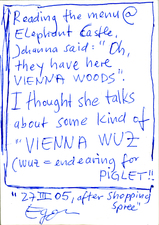 Reading the menu @
Elephant Castle,
Johanna said: "Oh,
they have here
VIENNA WOODS",
I thought she talks
about some kind of
"VIENNA WUZ
(wuz = endearing for
PIGLET!!
"27 III 05, after shopping
spree"
Egon